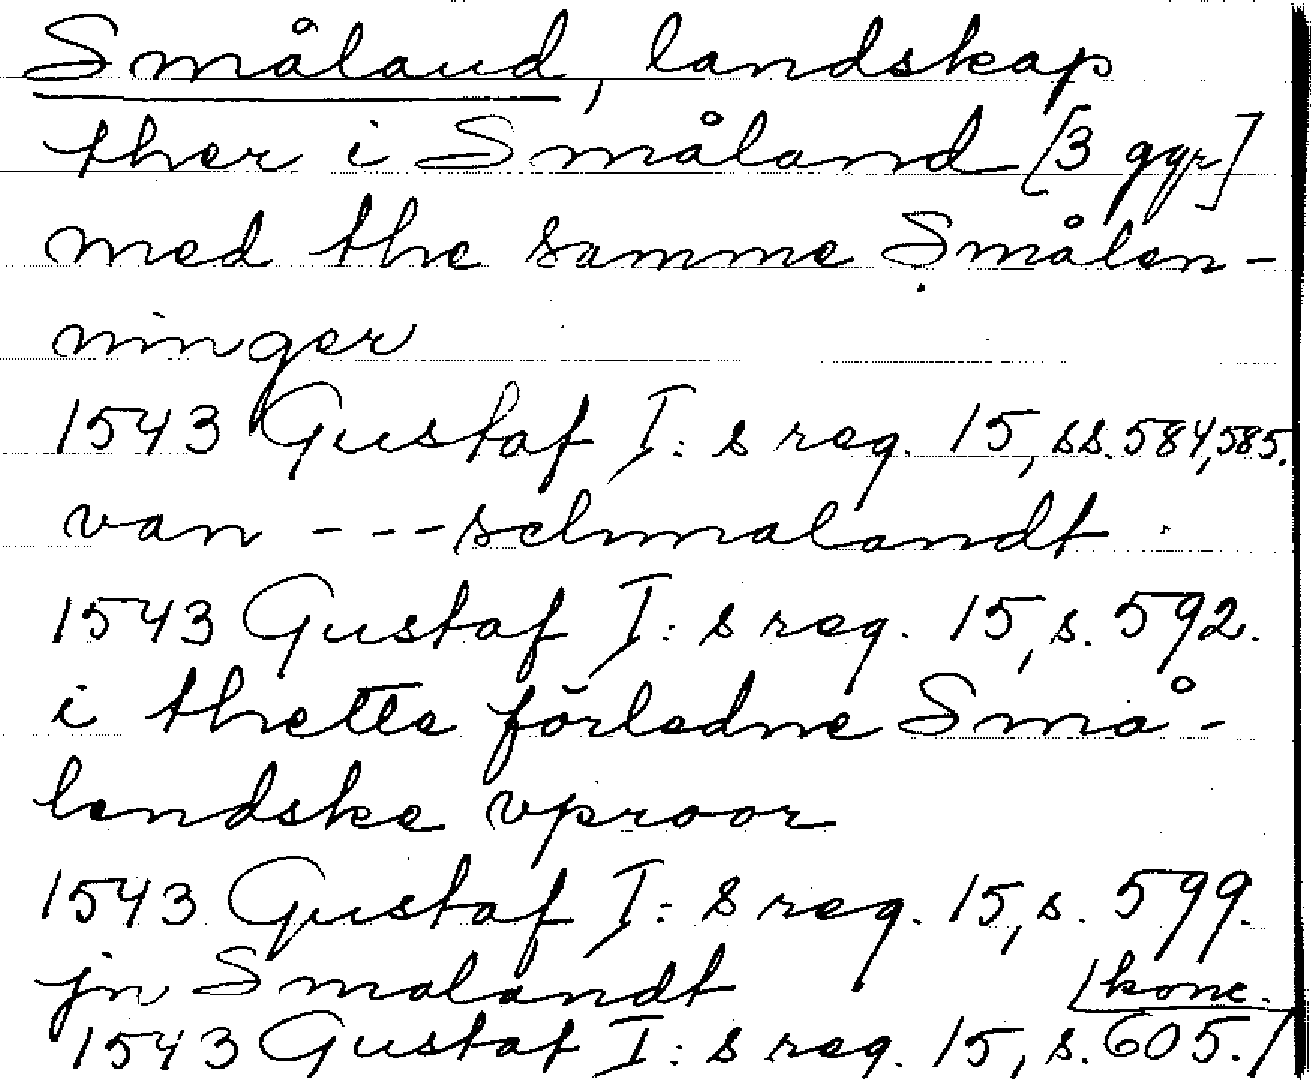 Småland, landskap
ther i Småland [3 ggr]
med the samme Smålen-
ninger
1543 Gustaf I:s reg. 15, ss. 584, 585.
van - - - schmalandt
1543 Gustaf I:s reg. 15, s. 592.
i thette förledne Små-
lendske vproor
1543 Gustaf I:s reg. 15, s. 599.
jn Smalandt
1543 Gustaf I:s reg. 15, s. 605. / konc.